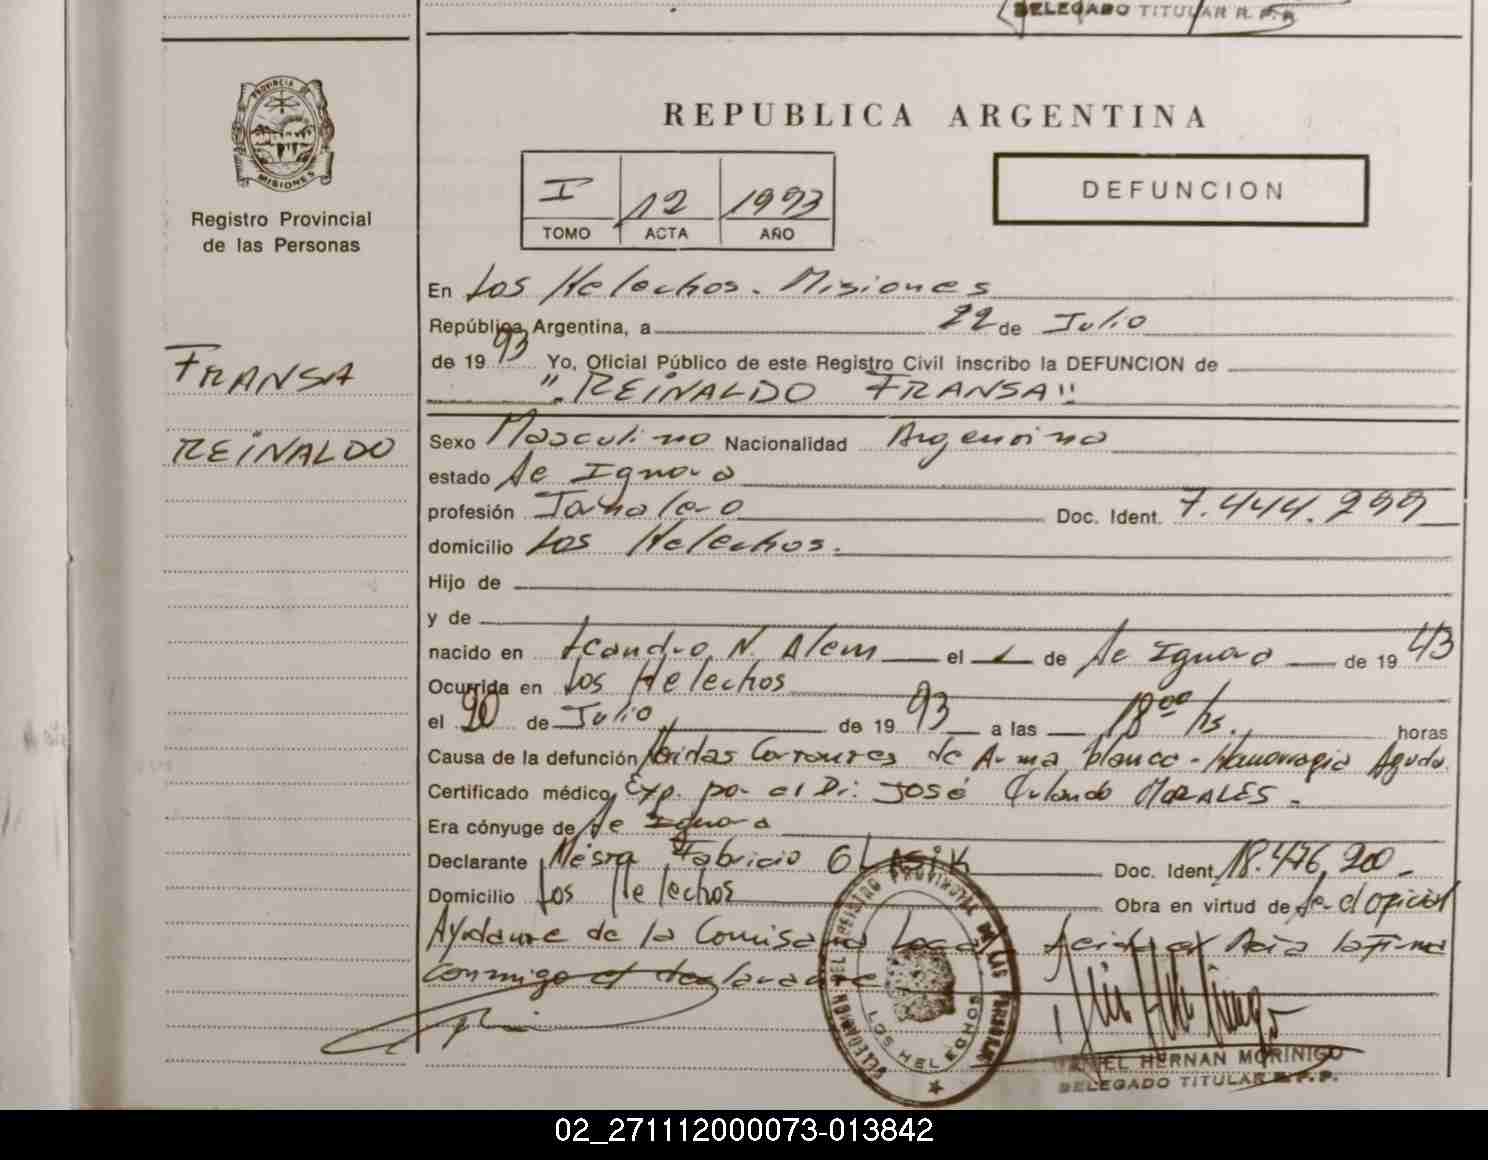 DELEGADO TITULAR R. P. P.
PROVINCIA DE
MISIONES
Registro Provincial
de las Personas
FRANSA
REINALDO
REPUBLICA ARGENTINA
I 12 1993
TOMO ACTA AÑO
DEFUNCION
En Los Helechos - Misiones
República Argentina, a 22 de Julio
de 1993 Yo, Oficial Público de este Registro Civil inscribo la DEFUNCION de
"REINALDO FRANSA"
Sexo Masculino Nacionalidad Argentina
estado Se Ignora
profesión Jornalero Doc. Ident. 7.444.299
domicilio Los Helechos.
Hijo de
y de
nacido en Leandro N. Alem el - de Se Ignora de 1943
Ocurrida en Los Helechos
el 20 de Julio de 1993 a las 18⁰⁰ hs. horas
Causa de la defunción Heridas Cortantes de Arma blanca - Hemorragia Aguda
Certificado médico Exp. por el Dr: JOSÉ Orlando MORALES -
Era cónyuge de Se Ignora
Declarante Néstor Fabricio OLASIK Doc. Ident. 18.476.920 -
Domicilio Los Helechos Obra en virtud de Ser el oficial
Ayudante de la Comisaria Local Leida el Acta la firma
Conmigo el declarante
DELEGACION DEL REGISTRO PROVINCIAL DE LAS PERSONAS
LOS HELECHOS
DANIEL HERNAN MORINIGO
DELEGADO TITULAR R. P. P.
02_271112000073-013842